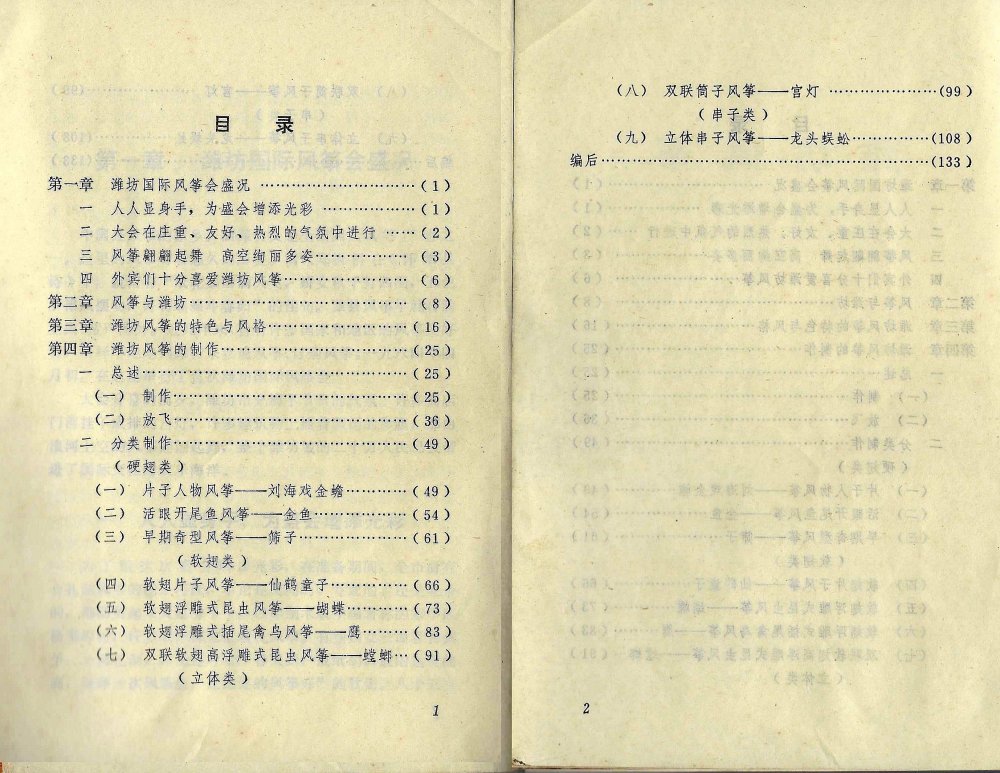 目 录
第一章 潍坊国际风筝会盛况 ………………………( 1 )
一 人人显身手，为盛会增添光彩 ………………( 1 )
二 大会在庄重、友好、热烈的气氛中进行 ……( 2 )
三 风筝翩翩起舞 高空绚丽多姿 ………………( 3 )
四 外宾们十分喜爱潍坊风筝………………………( 6 )
第二章 风筝与潍坊……………………………………( 8 )
第三章 潍坊风筝的特色与风格………………………( 16 )
第四章 潍坊风筝的制作………………………………( 25 )
一 总述………………………………………………( 25 )
（一） 制作…………………………………………( 25 )
（二） 放飞…………………………………………( 36 )
二 分类制作…………………………………………( 49 )
（硬翅类）
（一） 片子人物风筝——刘海戏金蟾…………( 49 )
（二） 活眼开尾鱼风筝——金鱼………………( 54 )
（三） 早期奇型风筝——筛子…………………( 61 )
（软翅类）
（四） 软翅片子风筝——仙鹤童子……………( 66 )
（五） 软翅浮雕式昆虫风筝——蝴蝶…………( 73 )
（六） 软翅浮雕式插尾禽鸟风筝——鹰………( 83 )
（七） 双联软翅高浮雕式昆虫风筝——螳螂…( 91 )
（立体类）
1
（八） 双联筒子风筝——宫灯 ………………(99 )
（串子类）
（九） 立体串子风筝——龙头蜈蚣……………(108)
编后……………………………………………………(133)
2